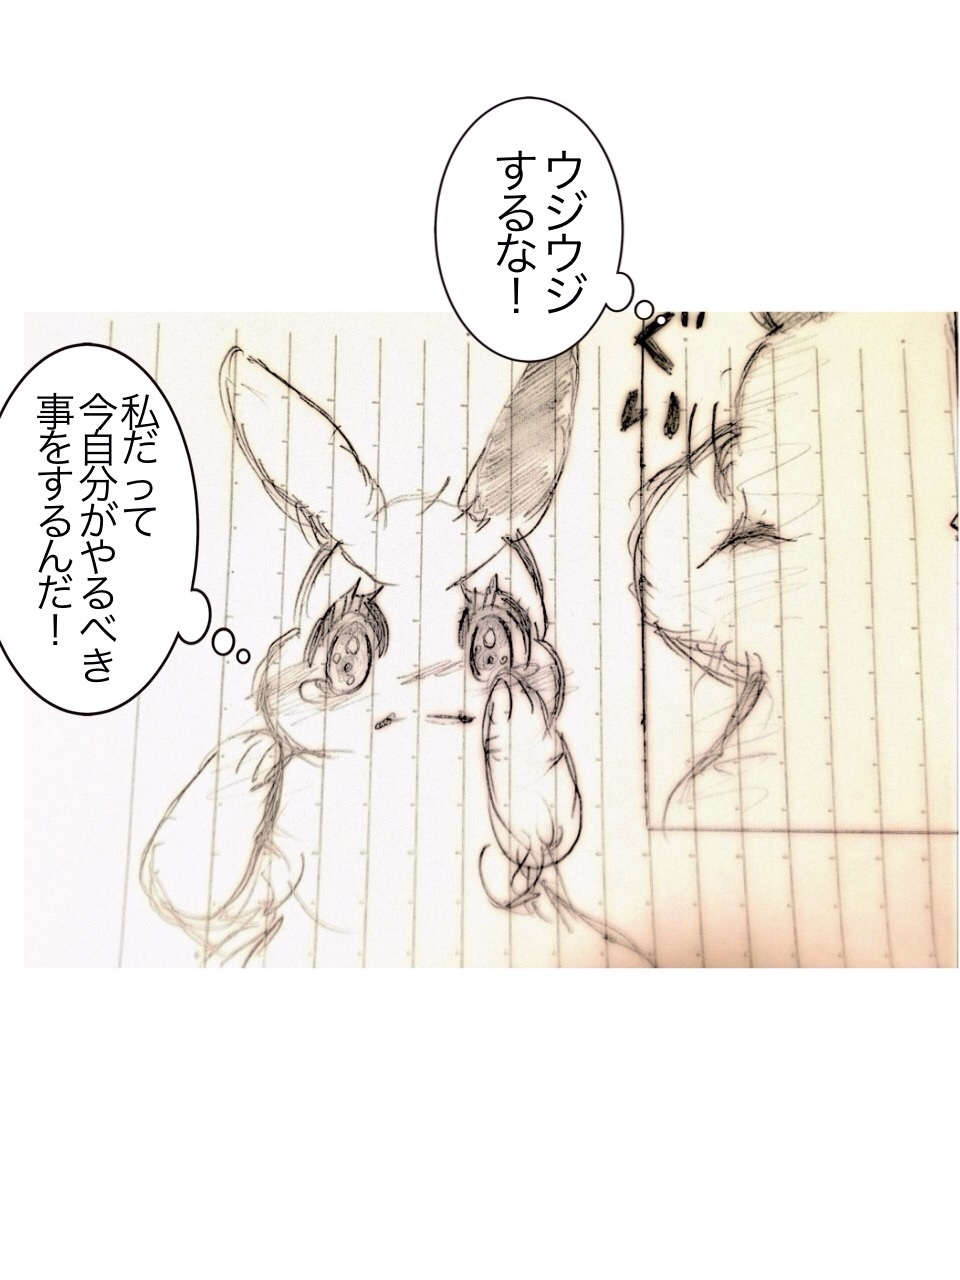 ウジウジ
するな！
ぐいっ
私だって
今自分がやるべき
事をするんだ！